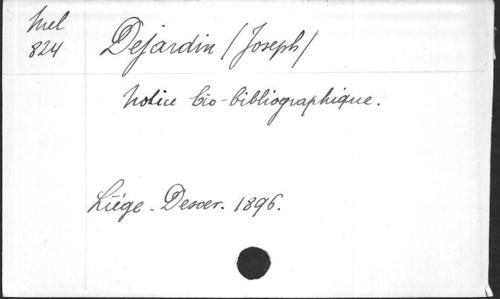 Mel
824
Dejardin (Joseph)
Notice bio-bibliographique.
Liége. Desoer. 1896.